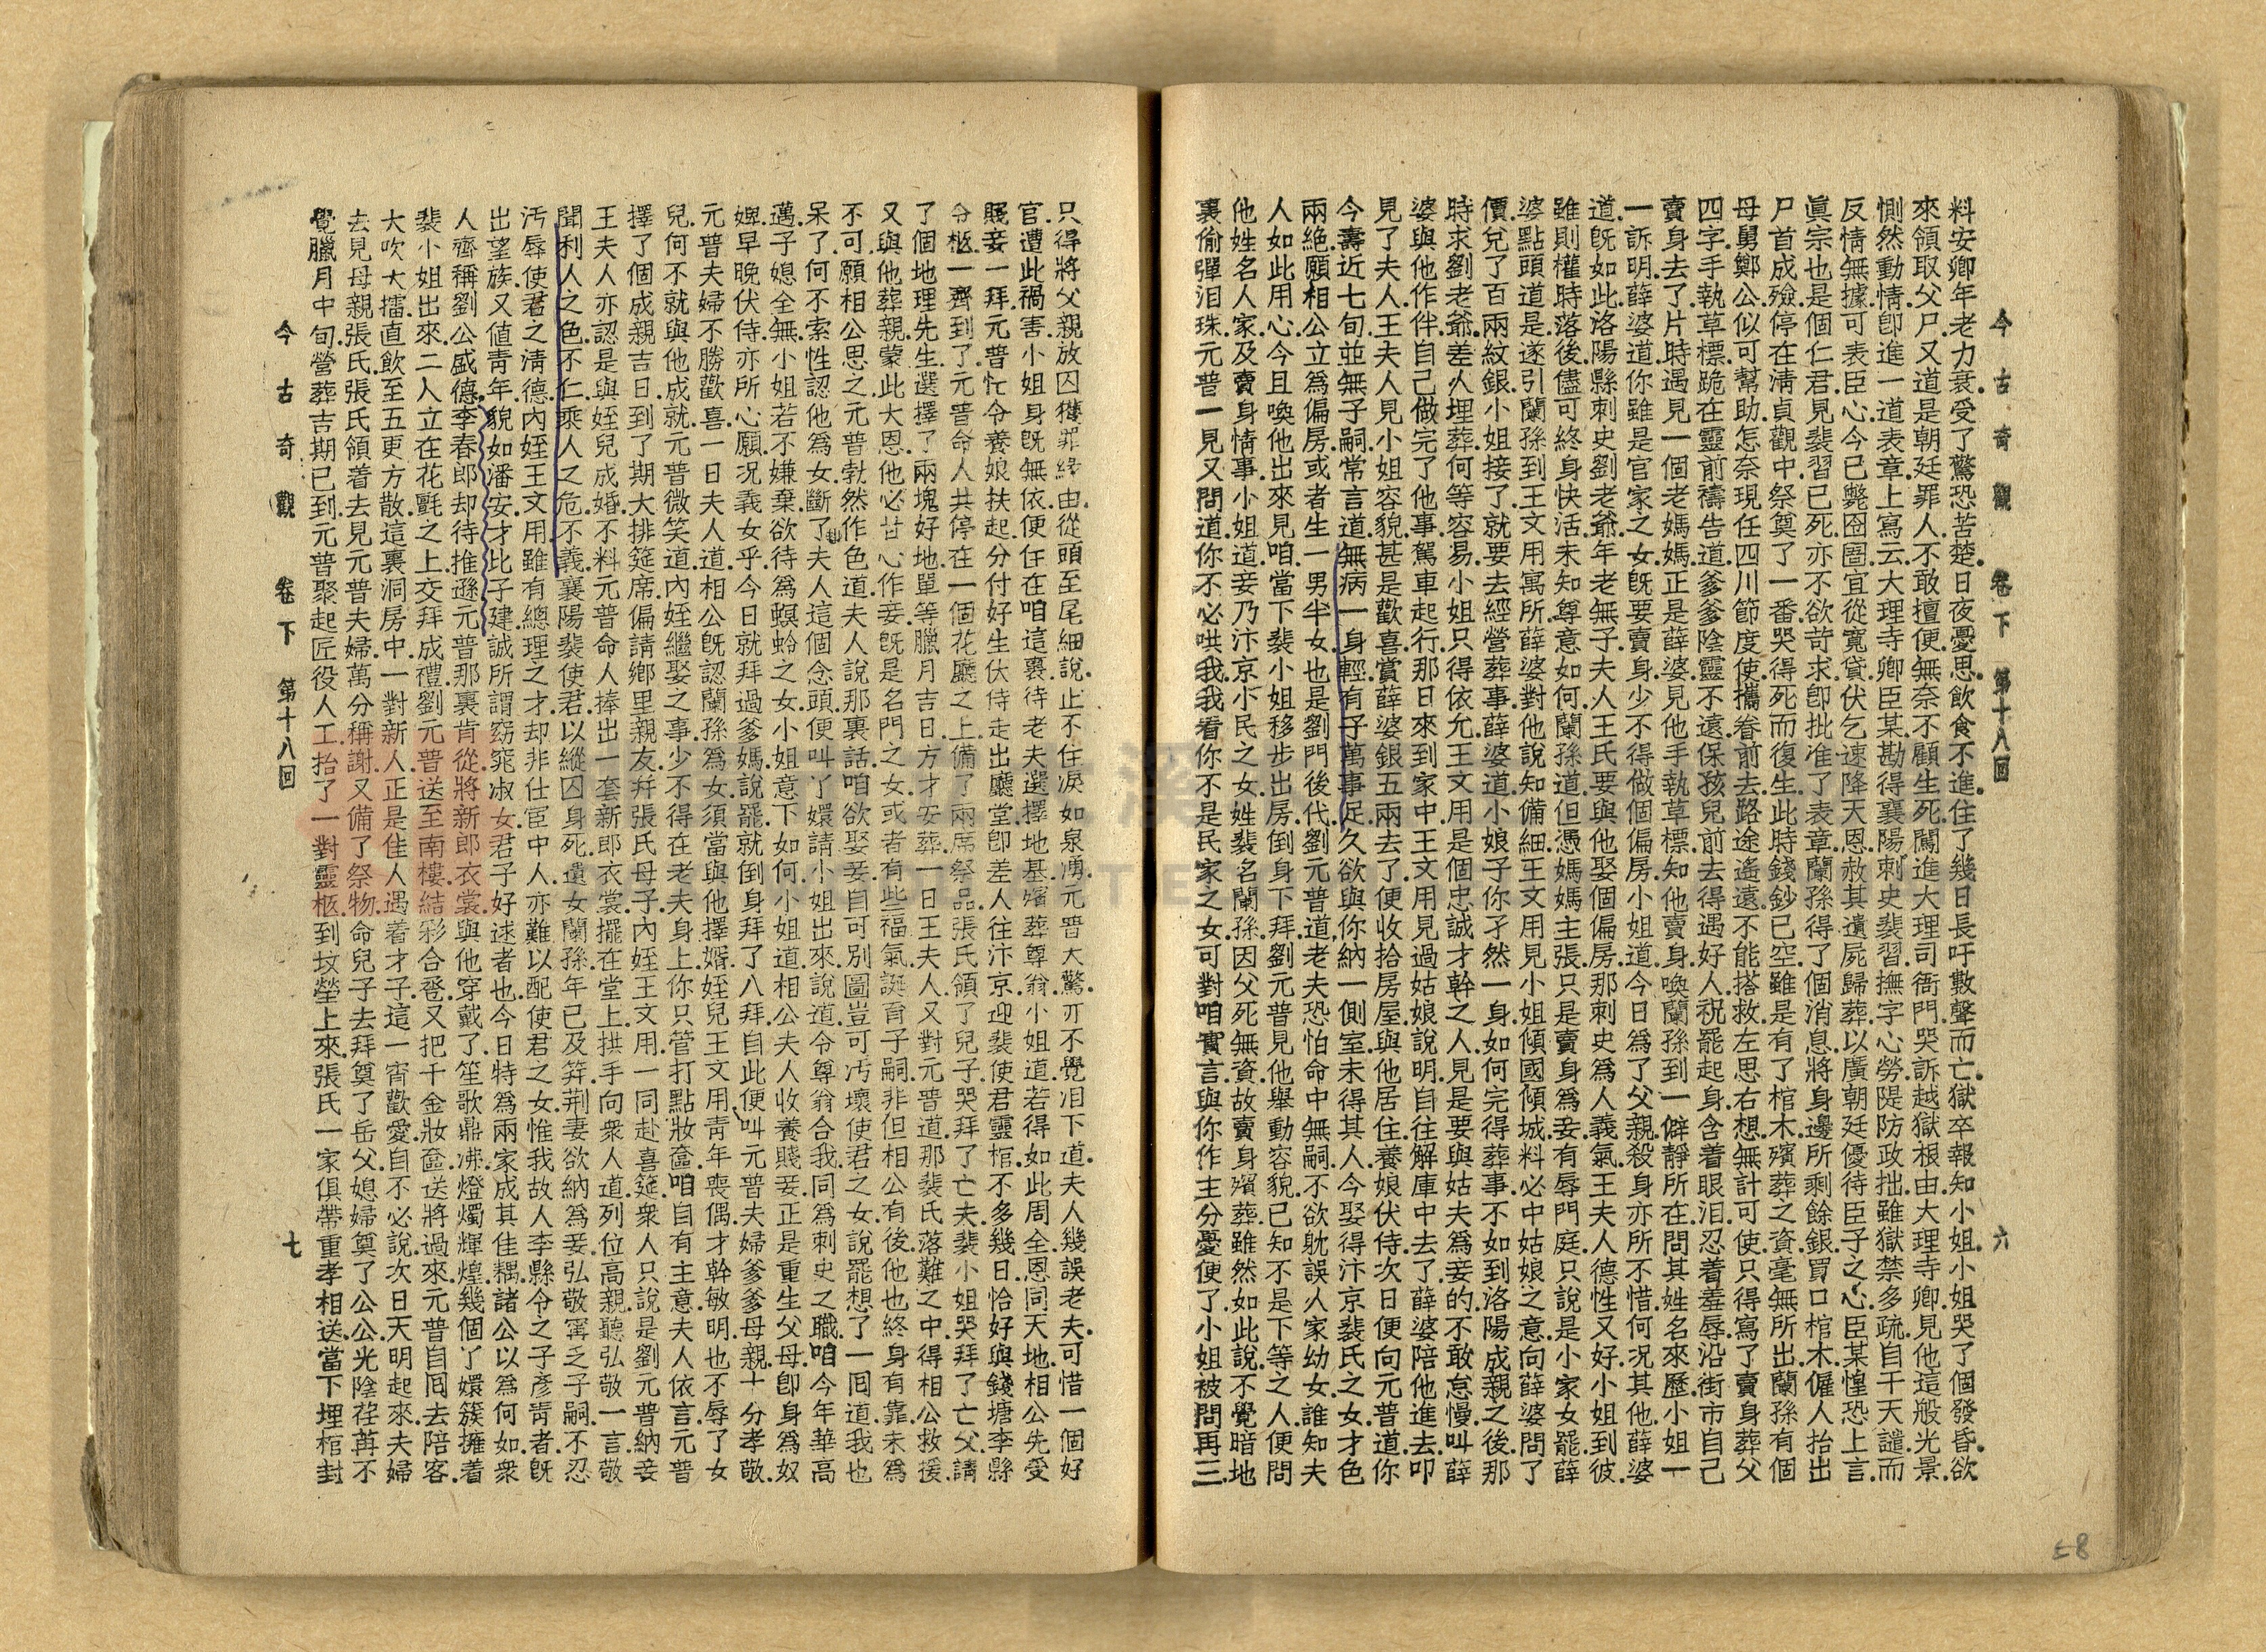 今古奇觀　卷下　第十八回　六
料安卿年老力衰.受了驚恐苦楚.日夜憂思.飲食不進.住了幾日.長吁數聲而亡.獄卒報知小姐.小姐哭了個發昏.欲
來領取父尸.又道是朝廷罪人.不敢擅便.無奈不顧生死.闖進大理司衙門.哭訴越獄根由.大理寺卿.見他這般光景.
惻然動情.卽進一道表章.上寫云.大理寺卿臣某.勘得襄陽刺史裴習.撫字心勞.隄防政拙.雖獄禁多疏.自干天譴.而
反情無據.可表臣心.今已斃囹圄.宜從寬貸.伏乞速降天恩.赦其遺屍歸葬.以廣朝廷優待臣子之心.臣某惶恐上言.
眞宗也是個仁君.見裴習已死.亦不欲苛求.卽批准了表章.蘭孫得了個消息.將身邊所剩餘銀.買口棺木.僱人抬出
尸首成殮.停在淸貞觀中.祭奠了一番.哭得死而復生.此時錢鈔已空.雖是有了棺木.殯葬之資.毫無所出.蘭孫有個
母舅鄭公.似可幫助.怎奈現任四川節度使.攜眷前去.路途遙遠.不能搭救.左思右想.無計可使.只得寫了賣身葬父
四字.手執草標.跪在靈前禱告道.爹爹陰靈不遠.保孩兒前去得遇好人.祝罷起身.含着眼泪.忍着羞辱.沿街市自己
賣身去了.片時遇見一個老媽媽.正是薛婆.見他手執草標.知他賣身.喚蘭孫到一僻靜所在.問其姓名來歷.小姐一
一訴明.薛婆道.你雖是官家之女.旣要賣身.少不得做個偏房.小姐道.今日爲了父親.殺身亦所不惜.何况其他.薛婆
道.旣如此.洛陽縣刺史劉老爺.年老無子.夫人王氏.要與他娶個偏房.那刺史爲人義氣.王夫人德性又好.小姐到彼.
雖則權時落後.儘可終身快活.未知尊意如何.蘭孫道.但憑媽媽主張.只是賣身爲妾.有辱門庭.只說是小家女罷.薛
婆點頭道是.遂引蘭孫到王文用寓所.薛婆對他說知備細.王文用見小姐傾國傾城.料必中姑娘之意.向薛婆問了
價.兌了百兩紋銀.小姐接了.就要去經營葬事.薛婆道.小娘子你孑然一身.如何完得葬事.不如到洛陽成親之後.那
時求劉老爺.差人埋葬.何等容易.小姐只得依允.王文用是個忠誠才幹之人.見是要與姑夫爲妾的.不敢怠慢.叫薛
婆與他作伴.自己做完了他事.駕車起行.那日來到家中.王文用見過姑娘.說明.自往解庫中去了.薛婆陪他進去.叩
見了夫人.王夫人見小姐容貌.甚是歡喜.賞薛婆銀五兩去了.便收拾房屋.與他居住.養娘伏侍.次日便向元普道.你
今壽近七旬.並無子嗣.常言道.無病一身輕.有子萬事足.久欲與你納一側室.未得其人.今娶得汴京裴氏之女.才色
兩絶.願相公立爲偏房.或者生一男半女.也是劉門後代.劉元普道.老夫恐怕命中無嗣.不欲躭誤人家幼女.誰知夫
人如此用心.今且喚他出來見咱.當下裴小姐移步出房.倒身下拜.劉元普見他舉動容貌.已知不是下等之人.便問
他姓名人家.及賣身情事.小姐道.妾乃汴京小民之女.姓裴名蘭孫.因父死無資.故賣身殯葬.雖然如此說.不覺暗地
裏偷彈泪珠.元普一見.又問道.你不必哄我.我看你不是民家之女.可對咱實言.與你作主分憂便了.小姐被問再三.
只得將父親放囚獲罪緣由.從頭至尾細說.止不住淚如泉湧.元普大驚.亦不覺泪下道.夫人幾誤老夫.可惜一個好
官.遭此禍害.小姐身旣無依.便住在咱這裏.待老夫選擇地基.殯葬尊翁.小姐道.若得如此周全.恩同天地.相公先受
賤妾一拜.元普忙令養娘扶起.分付好生伏侍.走出廳堂.卽差人往汴京.迎裴使君靈棺.不多幾日.恰好與錢塘李縣
令柩.一齊到了.元普命人共停在一個花廳之上.備了兩席祭品.張氏領了兒子.哭拜了亡夫.裴小姐哭拜了亡父.請
了個地理先生.選擇了兩塊好地.單等臘月吉日.方才安葬.一日王夫人又對元普道.那裴氏落難之中.得相公救援.
又與他葬親.蒙此大恩.他必甘心作妾.旣是名門之女.或者有些福氣.誕育子嗣.非但相公有後.他也終身有靠.未爲
不可.願相公思之.元普勃然作色道.夫人說那裏話.咱欲娶妾.自可別圖.豈可汚壞使君之女.說罷.想了一囘道.我也
呆了.何不索性認他爲女.斷了夫人這個念頭.便叫丫嬛請小姐出來說道.令尊翁合我同爲刺史之職.咱今年華高
邁.子媳全無.小姐若不嫌棄.欲待爲螟蛉之女.小姐意下如何.小姐道.相公夫人.收養賤妾.正是重生父母.卽身爲奴
婢.早晚伏侍.亦所心願.况義女乎.今日就拜過爹媽.說罷.就倒身拜了八拜.自此便叫元普夫婦爹爹母親.十分孝敬.
元普夫婦不勝歡喜.一日夫人道.相公旣認蘭孫爲女.須當與他擇婿.姪兒王文用靑年喪偶.才幹敏明.也不辱了女
兒.何不就與他成就.元普微笑道.內姪繼娶之事.少不得在老夫身上.你只管打點妝奩.咱自有主意.夫人依言.元普
擇了個成親吉日.到了期.大排筵席.偏請鄉里親友.幷張氏母子.內姪王文用.一同赴喜筵.衆人只說是劉元普納妾.
王夫人亦認是與姪兒成婚.不料元普命人捧出一套新郎衣裳.擺在堂上.拱手向衆人道.列位高親.聽弘敬一言.敬
聞利人之色.不仁.乘人之危.不義.襄陽裴使君.以縱囚身死.遺女蘭孫.年已及笄.荆妻欲納爲妾.弘敬寗乏子嗣.不忍
汚辱使君之淸德.內姪王文用.雖有總理之才.却非仕宦中人.亦難以配使君之女.惟我故人李縣令之子彥靑者.旣
出望族.又値靑年.貌如潘安.才比子建.誠所謂窈窕淑女.君子好逑者也.今日特爲兩家成其佳耦.諸公以爲何如.衆
人齊稱劉公盛德.李春郎却待推遜.元普那裏肯從.將新郎衣裳與他穿戴了.笙歌鼎沸.燈燭輝煌.幾個丫嬛簇擁着
裴小姐出來.二人立在花氈之上.交拜成禮.劉元普送至南樓結彩合巹.又把千金妝奩送將過來.元普自囘去陪客.
大吹大擂.直飲至五更方散.這裏洞房中一對新人.正是佳人遇着才子.這一宵歡愛.自不必說.次日天明起來.夫婦
去見母親張氏.張氏領着去見元普夫婦.萬分稱謝.又備了祭物.命兒子去拜奠了岳父.媳婦奠了公公.光陰荏苒.不
覺臘月中旬.營葬吉期已到.元普聚起匠役人工.抬了一對靈柩.到坟塋上來.張氏一家俱帶重孝相送.當下埋棺封
今古奇觀　卷下　第十八回　七
58